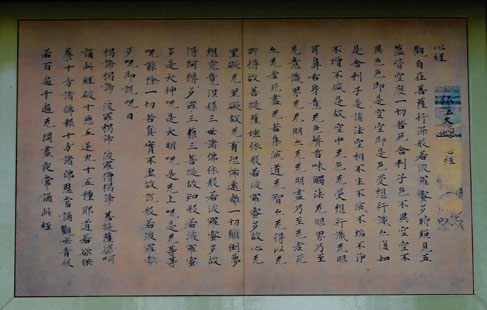 心經
觀自在菩薩行深般若波羅蜜多時照見五
蘊皆空度一切苦厄舍利子色不異空空不
異色色即是空空即是色受想行識亦復如
是舍利子是諸法空相不生不滅不垢不淨
不增不減是故空中无色无受想行識无眼
耳鼻舌身意无色聲香味觸法无眼界乃至
无意識界无无明亦无无明盡乃至无老死
亦无老死盡无苦集滅道无智亦无得以无
所得故菩提薩埵依般若波羅蜜多故心无
罣礙无罣礙故无有恐怖遠離一切顛倒夢
想究竟涅槃三世諸佛依般若波羅蜜多故
得阿耨多羅三藐三菩提故知般若波羅蜜
多是大神呪是大明呪是无上呪是无等等
呪能除一切苦真實不虛故說般若波羅蜜
多呪即說呪曰
揭諦揭諦 波羅揭諦 波羅僧揭諦 菩提薩婆呵
誦此經破十惡五逆九十五種耶道若欲供
養十方諸佛報十方諸佛恩當誦觀世音般
若百遍千遍无問晝夜常誦此經
心經